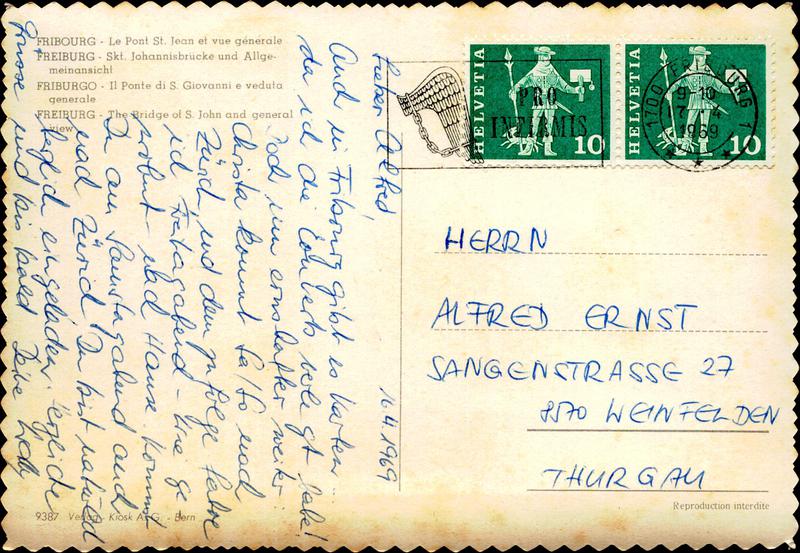 FRIBOURG - Le Pont St. Jean et vue générale
FREIBURG - Skt. Johannisbrücke und Allge-
meinansicht
FRIBURGO - Il Ponte di S. Giovanni e veduta
generale
FREIBURG - The Bridge of S. John and general
view
16.4.1969
Lieber Alfred,
Auch in Fribourg gibt es Karten
da ich die
Doch nun ernsthafter weiter
Christa kommt Sa/So nach
Zürich und demzufolge fahre
ich Freitagabend
nach Hause. Komme
Du am Samstagabend auch
nach Zürich? Du bist natürlich
eingeladen.
Grüsse und bis bald Deine
HELVETIA
10
HELVETIA
10
PRO
INFIRMIS
1700 FRIBOURG 1
9-10
17. 4
1969
HERRN
ALFRED ERNST
SANGENSTRASSE 27
8570 WEINFELDEN
THURGAU
Reproduction interdite
9387 Verlag - Kiosk A.G. - Bern